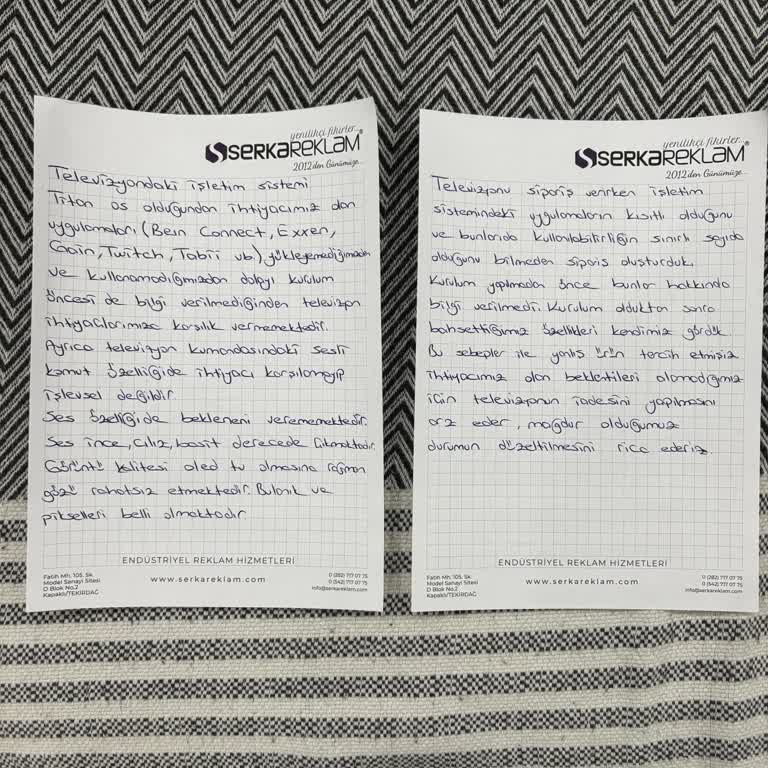 yenilikçi fikirler...
SERKAREKLAM®
2012'den Günümüze...
Televizyondaki işletim sistemi
Titan os olduğundan ihtiyacımız olan
uygulamaları (Bein Connect, Exxen,
Gain, Twitch, Tabii vb.) yükleyemediğimizden
ve kullanamadığımızdan dolayı kurulum
öncesi de bilgi verilmediğinden televizyon
ihtiyaçlarımıza karşılık vermemektedir.
Ayrıca televizyon kumandasındaki sesli
komut özelliğide ihtiyacı karşılamayıp
işlevsel değildir.
Ses özelliğide bekleneni verememektedir.
Ses ince, cılız, basit derecede çıkmaktadır.
Görüntü kalitesi oled tv olmasına rağmen
gözü rahatsız etmektedir. Bulanık ve
pikselleri belli olmaktadır
ENDÜSTRİYEL REKLAM HİZMETLERİ
Fatih Mh. 105. Sk.
Model Sanayi Sitesi
D Blok No.2
Kapaklı/TEKİRDAĞ
www.serkareklam.com
0 (282) 717 07 75
0 (542) 717 07 75
info@serkareklam.com
yenilikçi fikirler...
SERKAREKLAM®
2012'den Günümüze...
Televizyonu sipariş verirken işletim
sistemindeki uygulamaların kısıtlı olduğunu
ve bunlarıda kullanılabilirliğin sınırlı sayıda
olduğunu bilmeden sipariş oluşturduk.
Kurulum yapılmadan önce bunlar hakkında
bilgi verilmedi. Kurulum olduktan sonra
bahsettiğimiz özellikleri kendimiz gördük.
Bu sebepler ile yanlış ürün tercih etmişiz
ihtiyacımız olan beklentileri alamadığımız
için televizyonun iadesini yapılmasını
arz eder, mağdur olduğumuz
durumun düzeltilmesini rica ederiz.
ENDÜSTRİYEL REKLAM HİZMETLERİ
Fatih Mh. 105. Sk.
Model Sanayi Sitesi
D Blok No.2
Kapaklı/TEKİRDAĞ
www.serkareklam.com
0 (282) 717 07 75
0 (542) 717 07 75
info@serkareklam.com